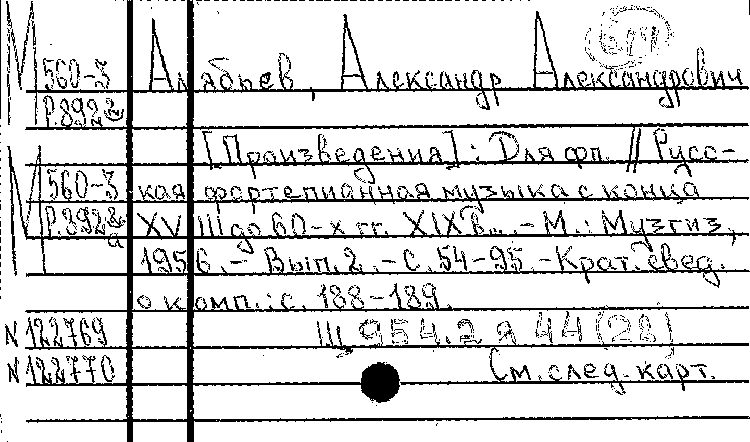 М 560-3
Р.892
Алябьев, Александр Александрович
[Произведения]: Для фп. // Русс-
М 560-3
Р.892
а
кая фортепианная музыка с конца
XVIII до 60-х гг. XIX в... - М.: Музгиз,
1956. - Вып. 2. - С. 54-95. - Крат. свед.
о комп.: с. 188-189.
N 122769
Щ 954.2 я 44 (28)
N 122770
См. след. карт.